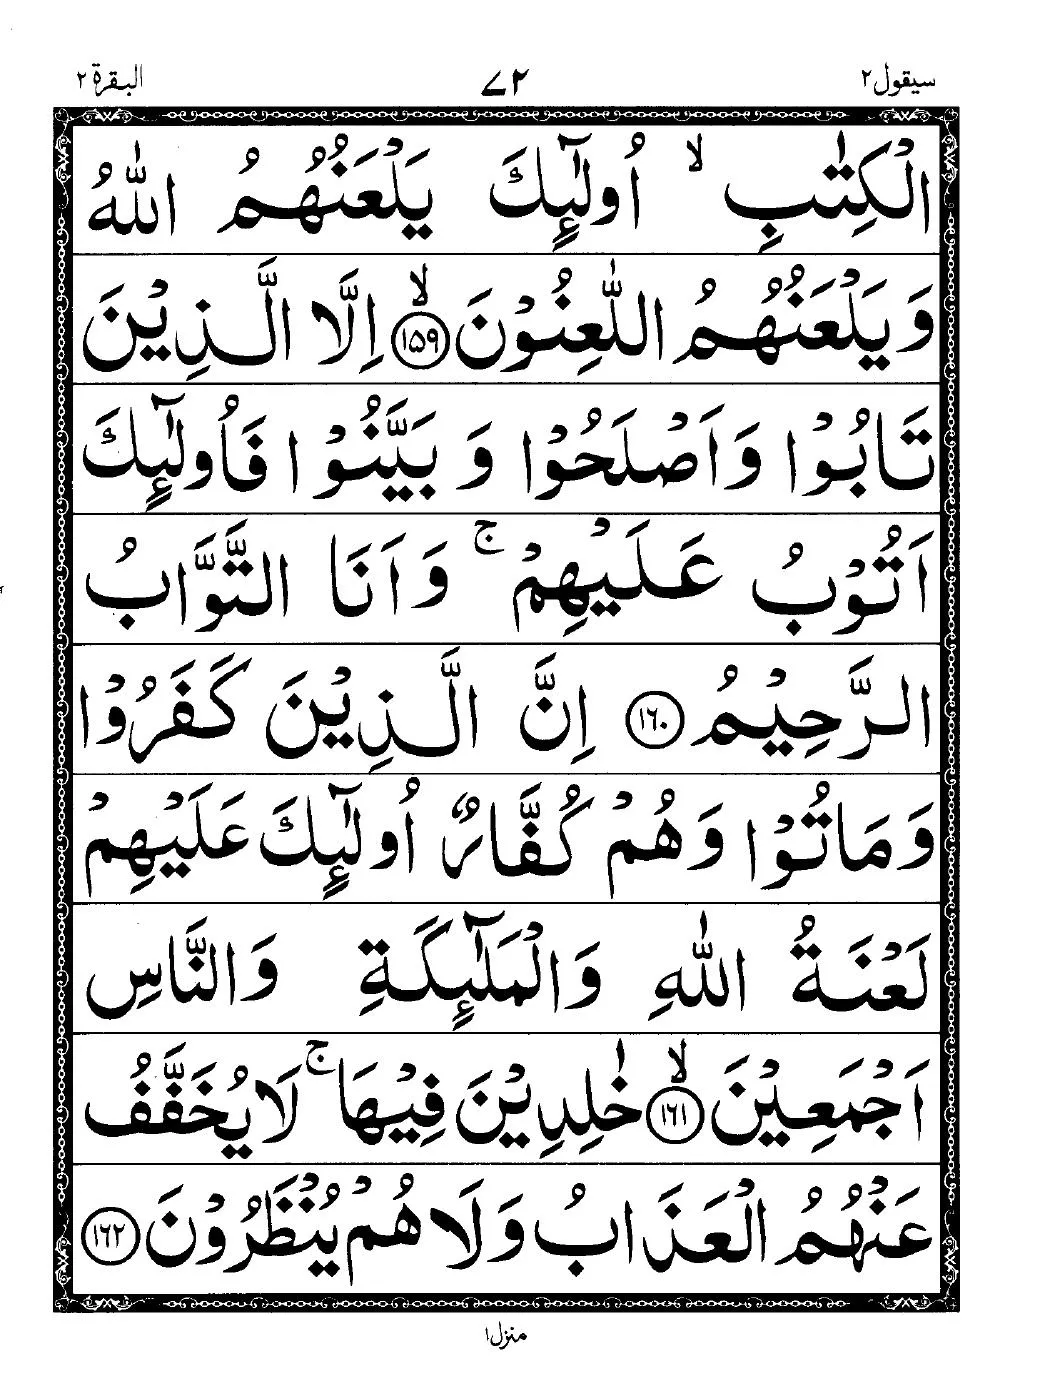 سيقول ٢
٧٢
البقرة ٢
الْكِتٰبِ ۙ اُولٰٓئِكَ يَلْعَنُهُمُ اللّٰهُ
وَيَلْعَنُهُمُ اللّٰعِنُوْنَ ۙ﴿١٥٩﴾ اِلَّا الَّذِيْنَ
تَابُوْا وَاَصْلَحُوْا وَ بَيَّنُوْا فَاُولٰٓئِكَ
اَتُوْبُ عَلَيْهِمْ ۚ وَاَنَا التَّوَّابُ
الرَّحِيْمُ ﴿١٦٠﴾ اِنَّ الَّذِيْنَ كَفَرُوْا
وَمَاتُوْا وَهُمْ كُفَّارٌ اُولٰٓئِكَ عَلَيْهِمْ
لَعْنَةُ اللّٰهِ وَالْمَلٰٓئِكَةِ وَالنَّاسِ
اَجْمَعِيْنَ ۙ﴿١٦١﴾ خٰلِدِيْنَ فِيْهَا ۚ لَا يُخَفَّفُ
عَنْهُمُ الْعَذَابُ وَلَا هُمْ يُنْظَرُوْنَ ﴿١٦٢﴾
منزل ١